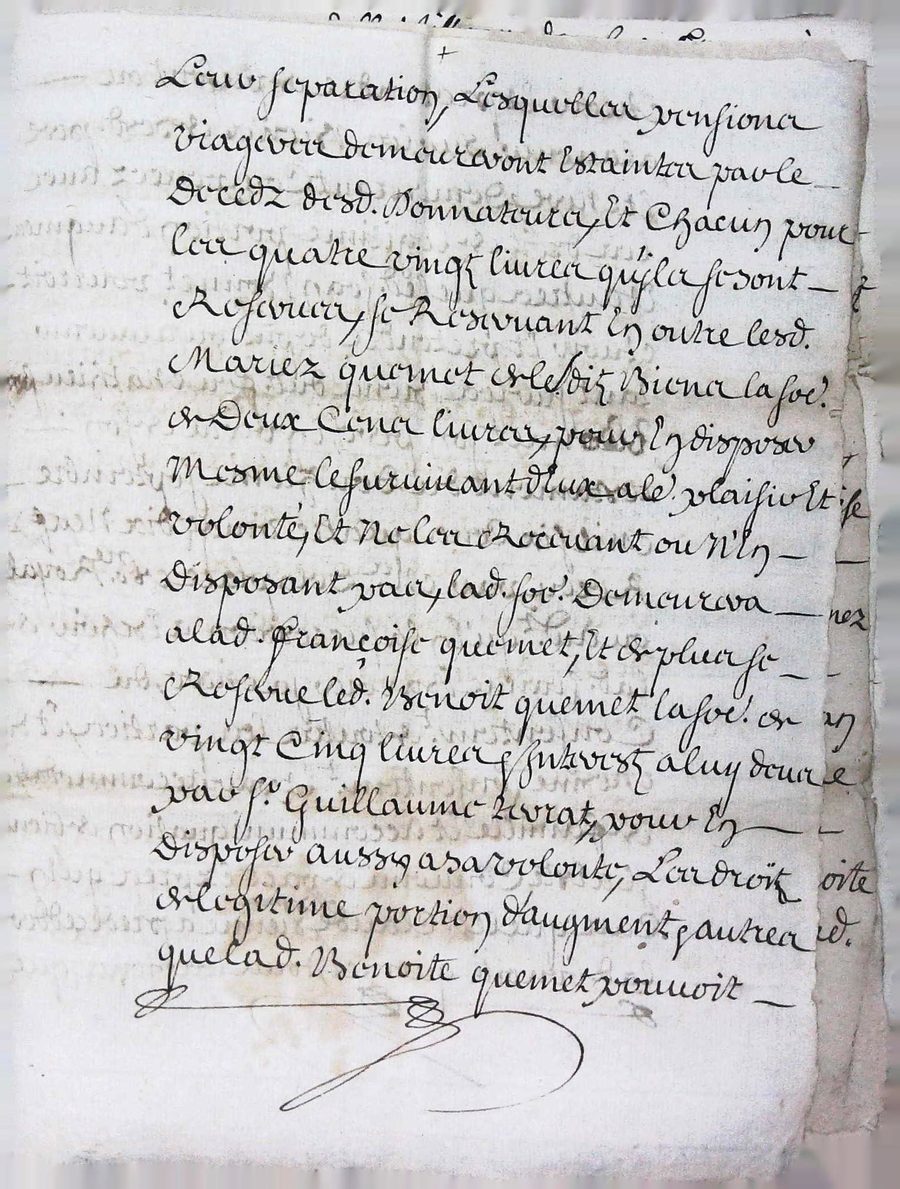 Leur separation, Lesquelles pensions
viageres demeureront Estaintes par le
Decedz desd. Donnateurs, Et Chacun pour
les quatre vingt livres qu'ils se sont
Reservés, se Reservant En outre lesd.
Mariez quemet de lesdit Biens la soe.
de Deux Cens livres, pour En disposer
Mesme le survivant d'Eux a le. plaisir Et
volonté, Et Ne les Recevant ou N'En
disposant pas, lad. soe. Demeurera
a lad. françoise quemet, Et de plus se
Reserve led. Benoit quemet la soe. de
vingt Cinq livres & Interest a luy deus
par sr. Guillaume pour En
disposer aussy a sa volonté, Les droit
de legitime portion d'augment & autres
que lad. Benoite quemet pouvoit
se
nez
an
e
oite
d.